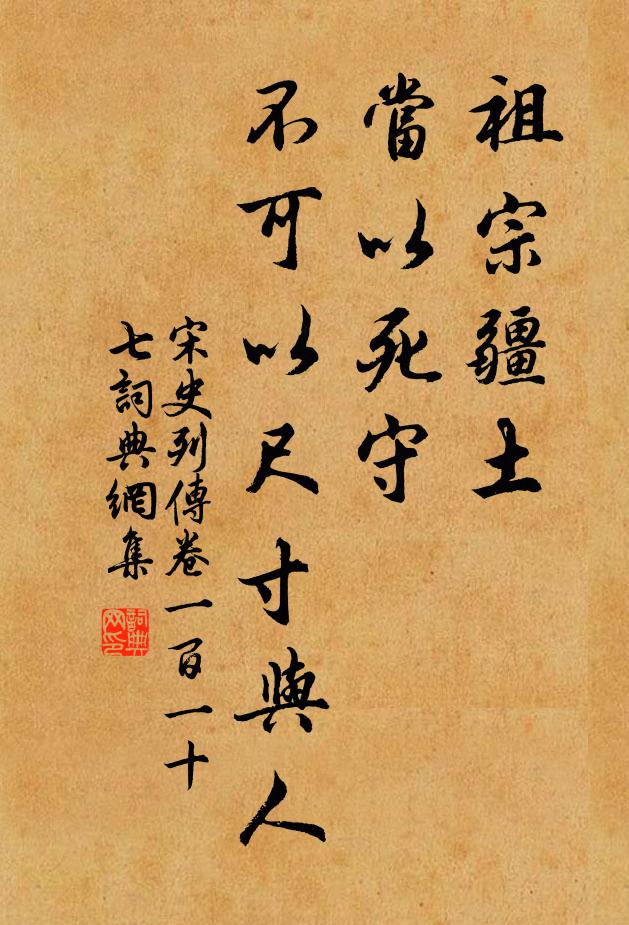 祖宗疆土
當以死守
不可以尺寸與人
宋史列傳卷一百一十
七詞典網集
詞典
网印